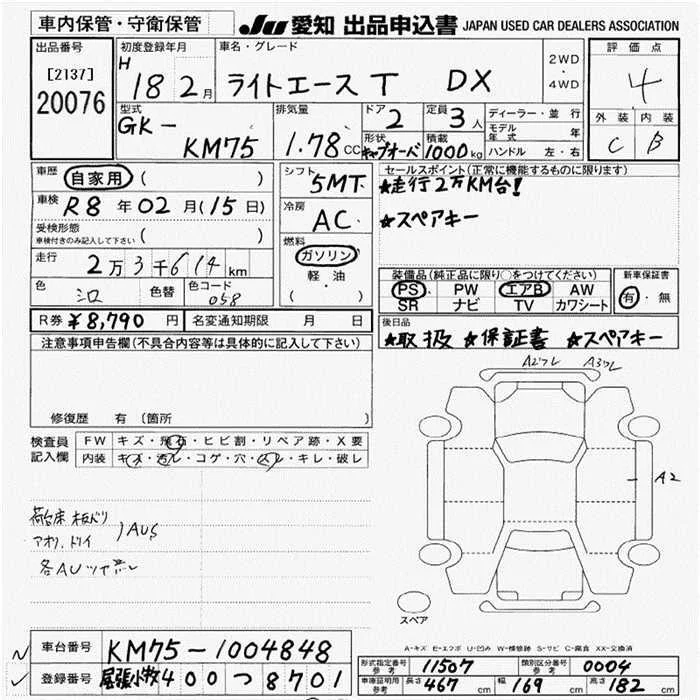 車内保管・守衛保管
JU 愛知 出品申込書 JAPAN USED CAR DEALERS ASSOCIATION
出品番号 [2137] 20076
初度登録年月 H 18 2月
車名・グレード ライトエース T DX
2WD・4WD
評価点 4
外装 C 内装 B
型式 GK-KM75
排気量 1.78cc
ドア 2
形状 キャブオーバ
定員 3人
積載 1000kg
ディーラー・並行
モデル年式 年
ハンドル 左・右
車歴 自家用 ( )
車検 R8年02月(15日)
受検形態 ( )
車検付きのみ記入して下さい
走行 2万3千614km
色 シロ 色替 色コード 058
シフト 5MT
冷房 AC
燃料 ガソリン
軽・油
( )
セールスポイント(正常に機能するものに限ります)
★走行2万KM台!
★スペアキー
装備品(純正品に限り○をつけてください)
PS PW エアB AW
SR ナビ TV カワシート
新車保証書
有・無
R券 ¥8,790円 名変通知期限 月 日
後日品
★取扱 ★保証書 ★スペアキー
注意事項申告欄(不具合内容等は具体的に記入して下さい)
修復歴 有 (箇所
検査員記入欄
FW キズ・飛石・ヒビ割・リペア跡・X要
内装 キズ・汚レ・コゲ・穴・スレ・キレ・破レ
A2
アオリ、
各AU
スペア
A-キズ E-エクボ U-凹み W-補修跡 S-サビ C-腐食 XX-交換済
車台番号 KM75-1004848
登録番号 尾張小牧400つ8701
形式指定番号 参考 11507 類別区分番号 参考 0004
車庫証明用 参考 長さ 467cm 幅 169cm 高さ 182cm